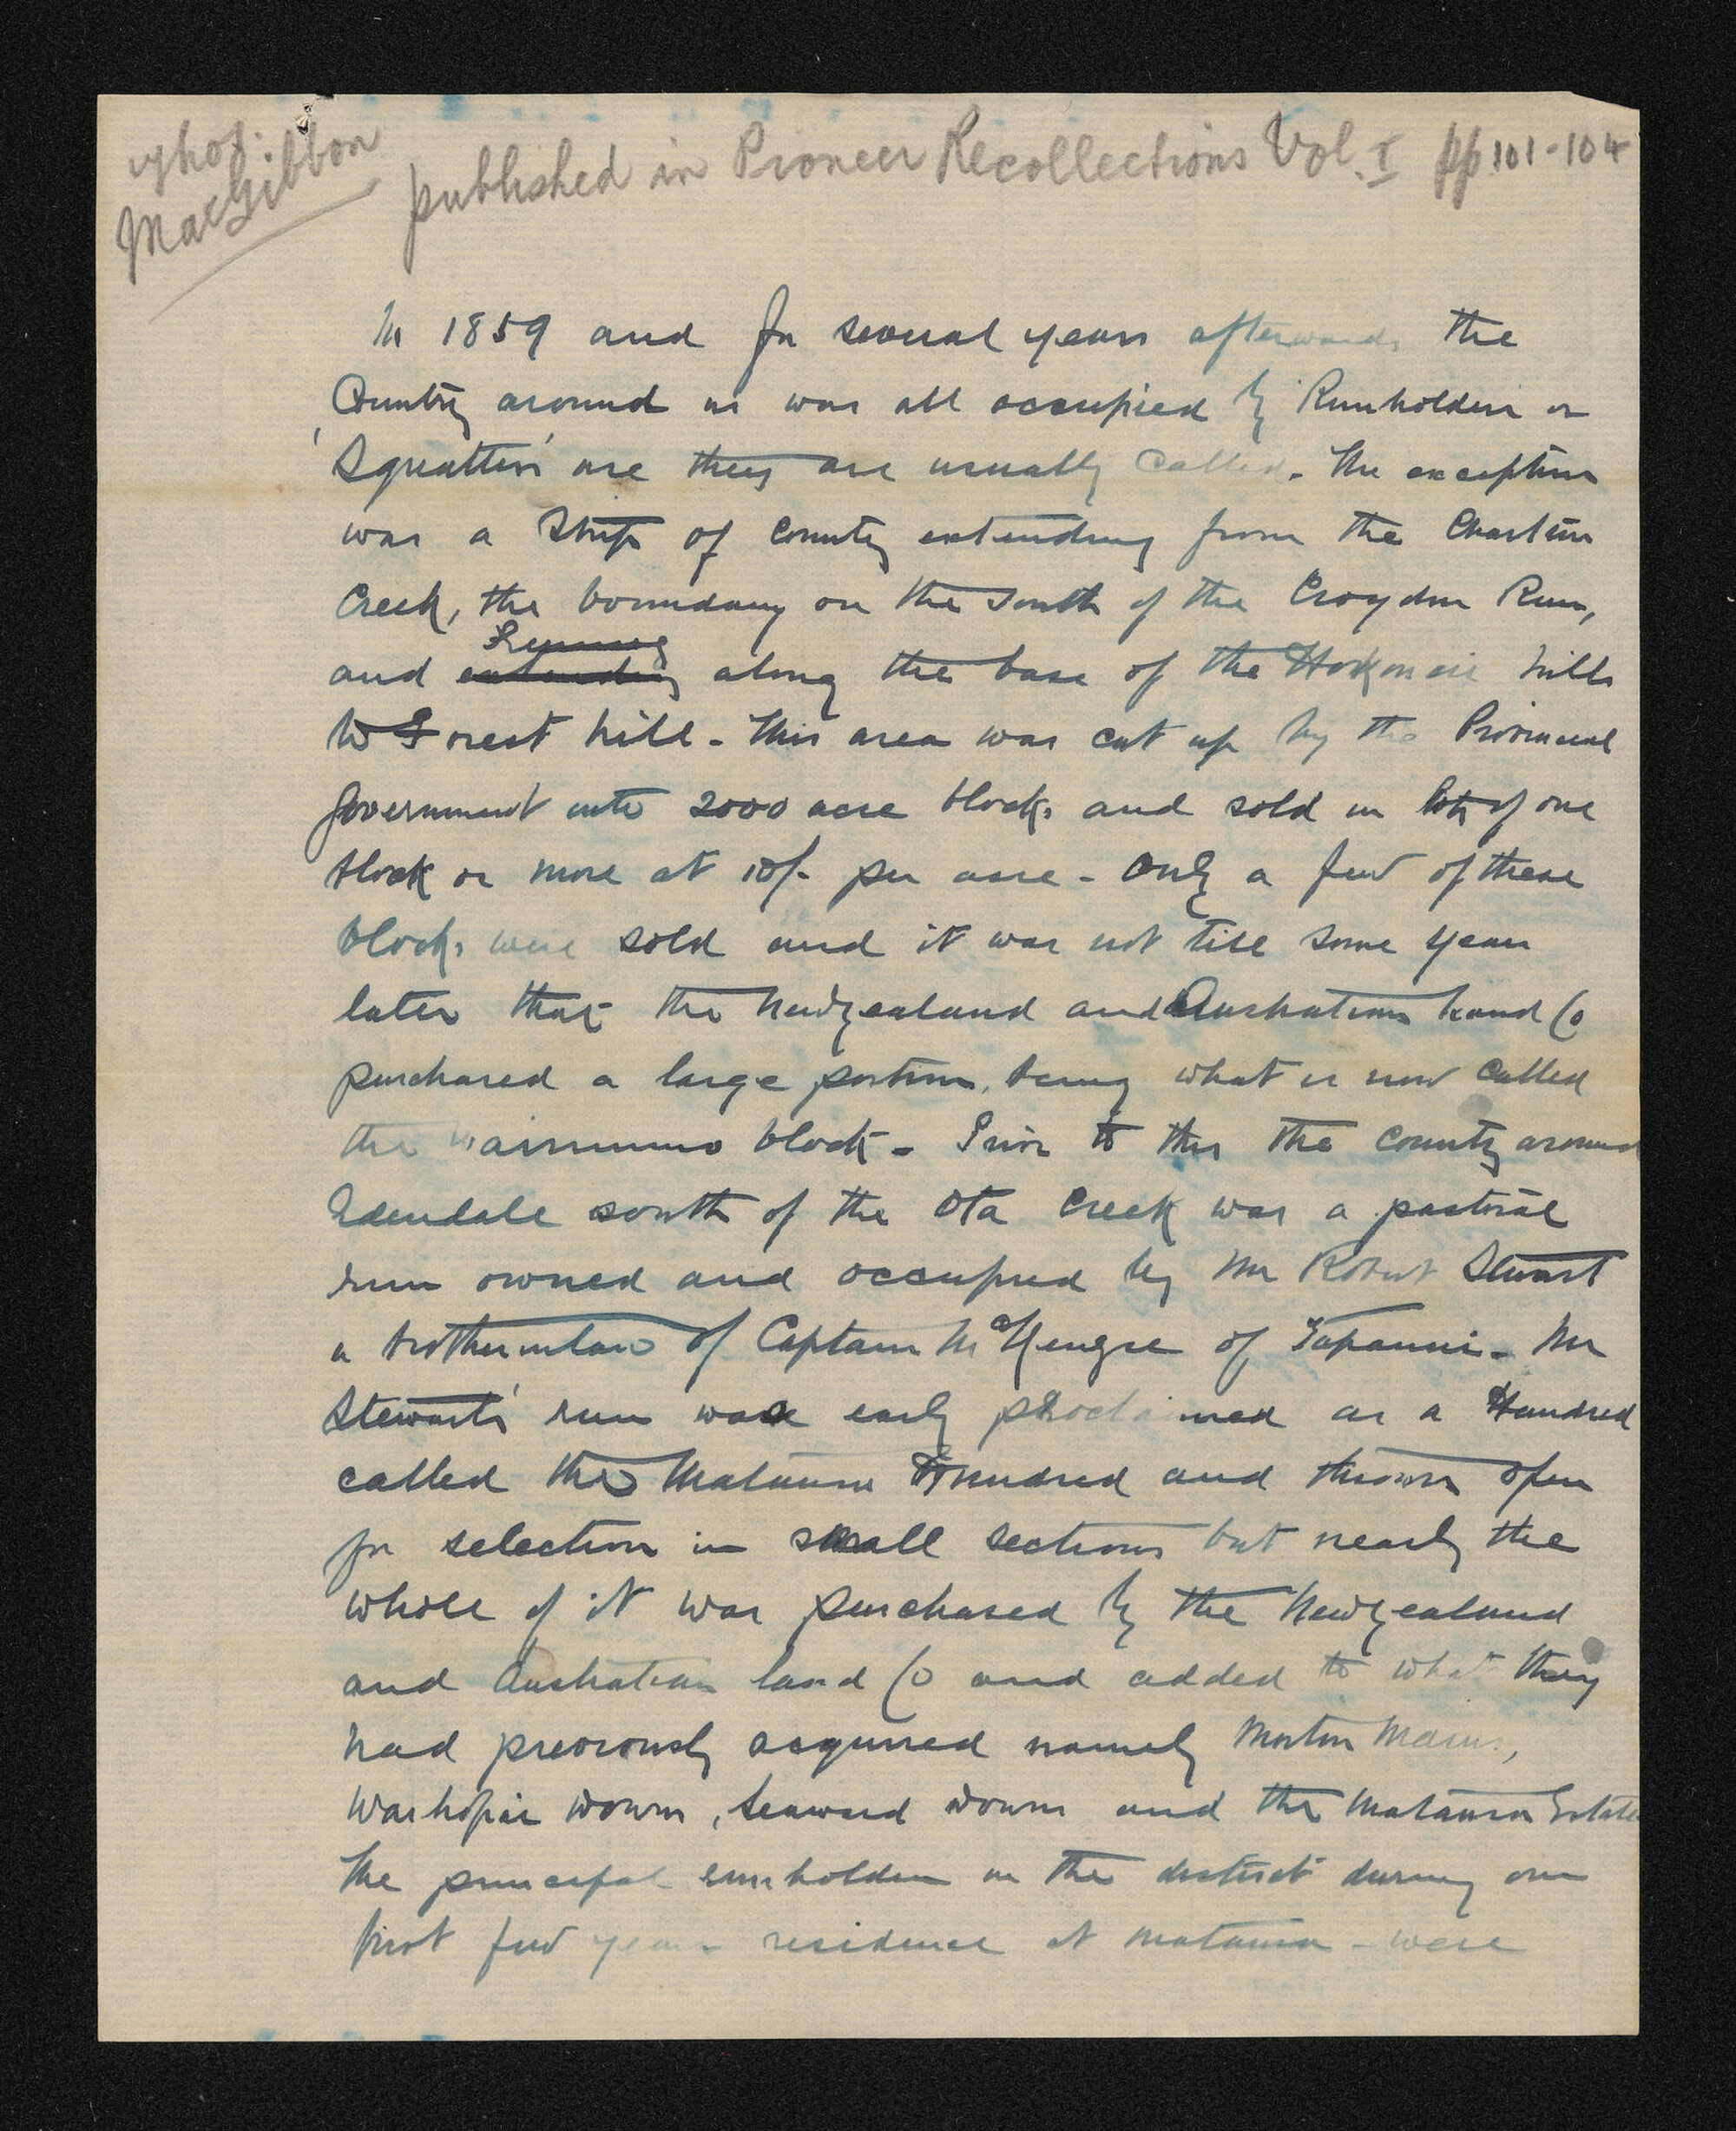 Thos. MacGibbon
published in Pioneer Recollections Vol. I pp 101-104
In 1859 and for several years afterwards the
Country around us was all occupied by Runholders or
'Squatters' are they are usually called. The exception
was a Strip of County extending from the Charlton
Creek, the boundary on the South of the Croydon Run,
running
and extending along the base of the Hokonui hills
to Forest hill - This area was cut up by the Provincial
Government into 2000 acre blocks and sold in lots of one
block or more at 10/- per acre - Only a few of these
blocks were sold and it was not till some years
later that the New Zealand and Australian Land Co
purchased a large portion, being what is now called
the Waimumu block - Prior to this the county around
Edendale south of the Ota Creek was a pastoral
run owned and occupied by Mr Robert Stewart
a brotherinlaw of Captain McKenzie of Tapanui - Mr
Stewart's run was early proclaimed as a Hundred
called the Mataura Hundred and thrown open
for selection in small sections but nearly the
whole of it was purchased by the New Zealand
and Australian land Co and added to what they
had previously acquired namely Morton Mains,
Waikopai Downs, Seaward Downs and the Mataura Estate
The principal runholders in the district during our
first few years residence at Mataura - were